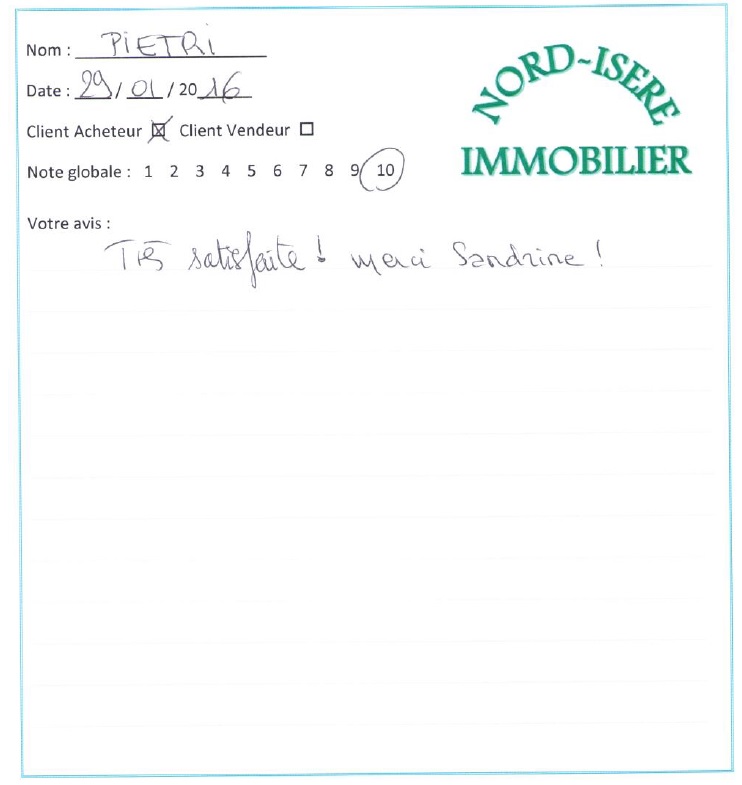 Nom : PIETRI
Date : 29 / 01 / 2016
Client Acheteur ☒ Client Vendeur ☐
Note globale : 1 2 3 4 5 6 7 8 9 10
NORD-ISERE
IMMOBILIER
Votre avis :
Très satisfaite ! merci Sandrine !